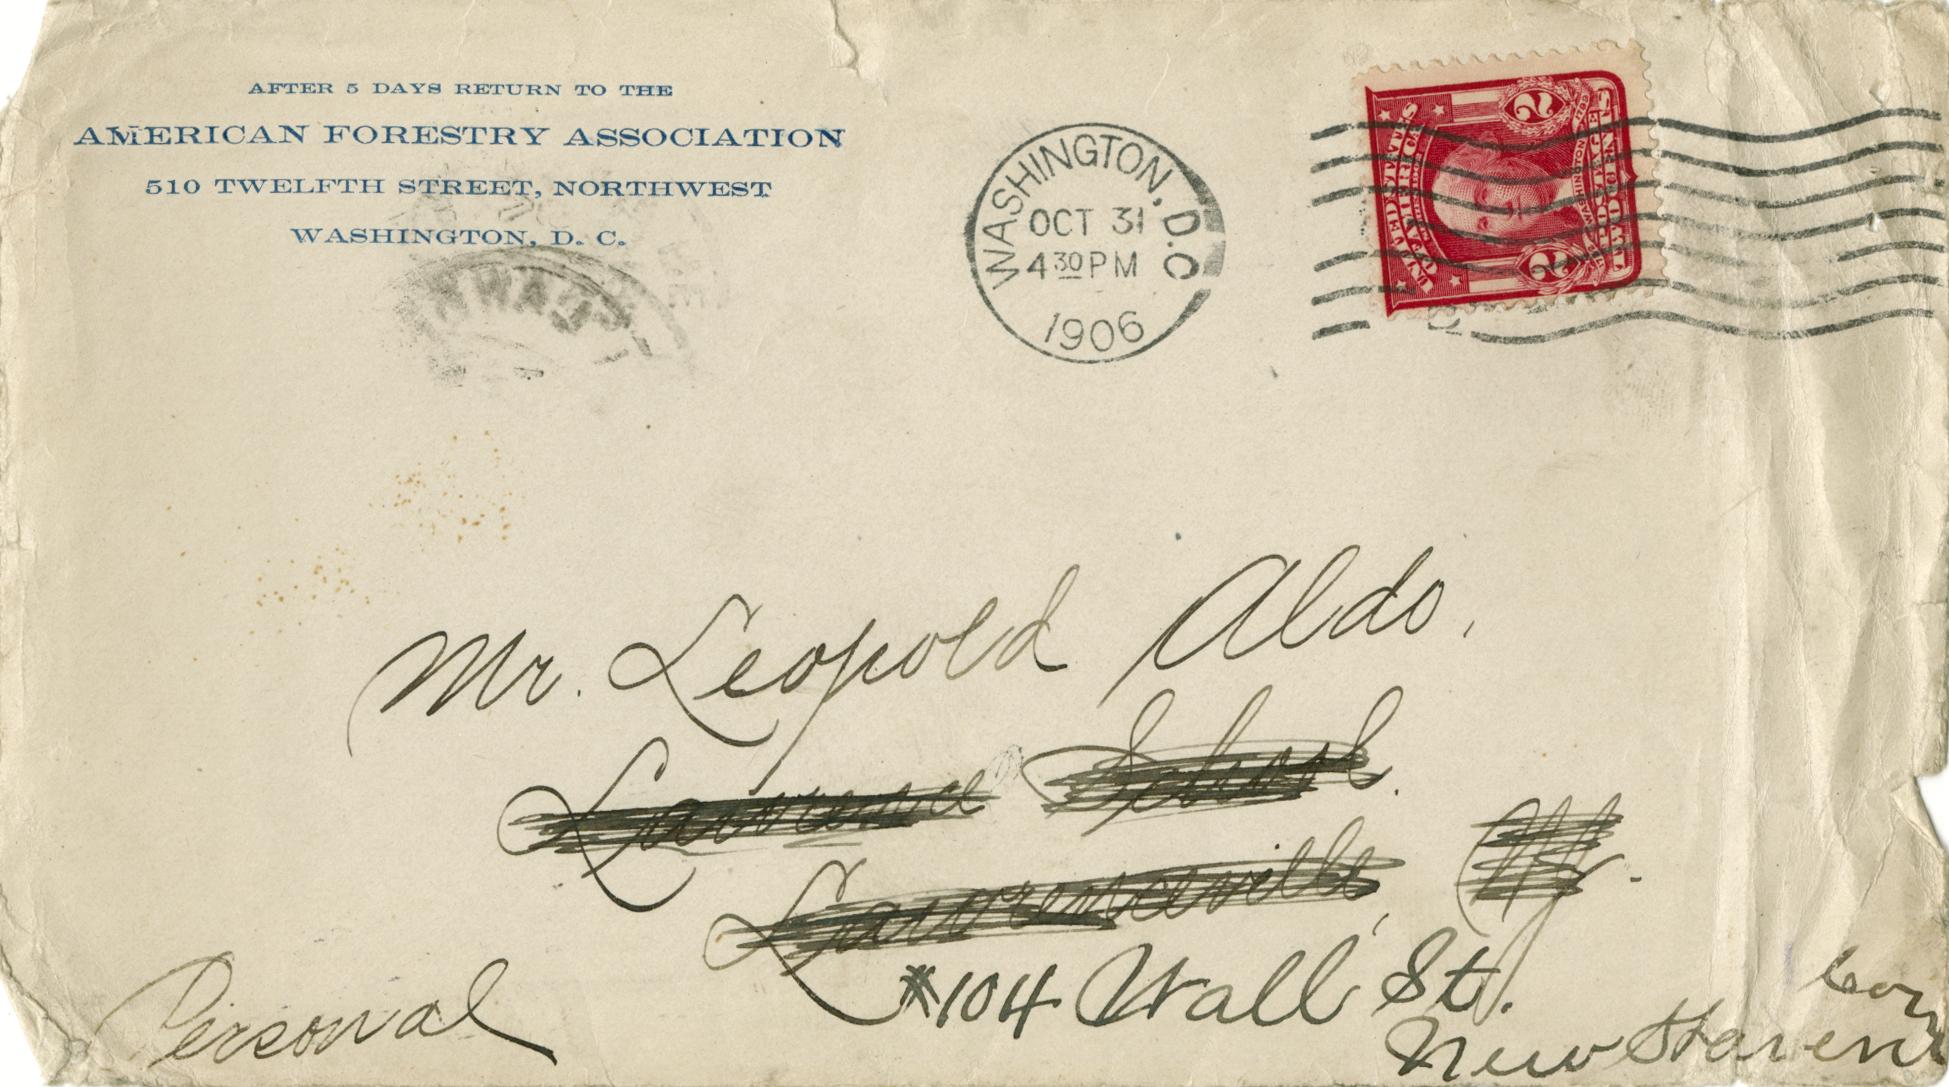 AFTER 5 DAYS RETURN TO THE
AMERICAN FORESTRY ASSOCIATION
510 TWELFTH STREET, NORTHWEST
WASHINGTON, D. C.
WASHINGTON, D.C.
OCT 31
4 30 PM
1906
UNITED STATES OF AMERICA
2 2
Mr. Leopold Aldo,
Lawrence School.
Lawrenceville, NJ.
#104 Wall St.
New Haven
Personal